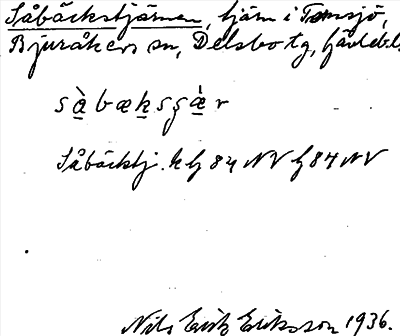 Såbäckstjärnen, tjärn i Tomsjö,
Bjuråkers sn, Delsbo tg, Gävlebl.
såbæksçæ̀r
Såbäckstj. k bj 84 NV bj 84 NV
Nils Erik Eriksson 1936.